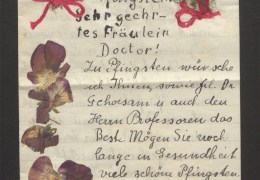 sehr geehr-
tes Fräulein
Doctor!
Zu Pfingsten wünsche
ich Ihnen, sowie Frl. Dr
u auch den
Herrn Professoren das
Beste Mögen Sie noch
lange in Gesundheit
viele schöne Pfingsten